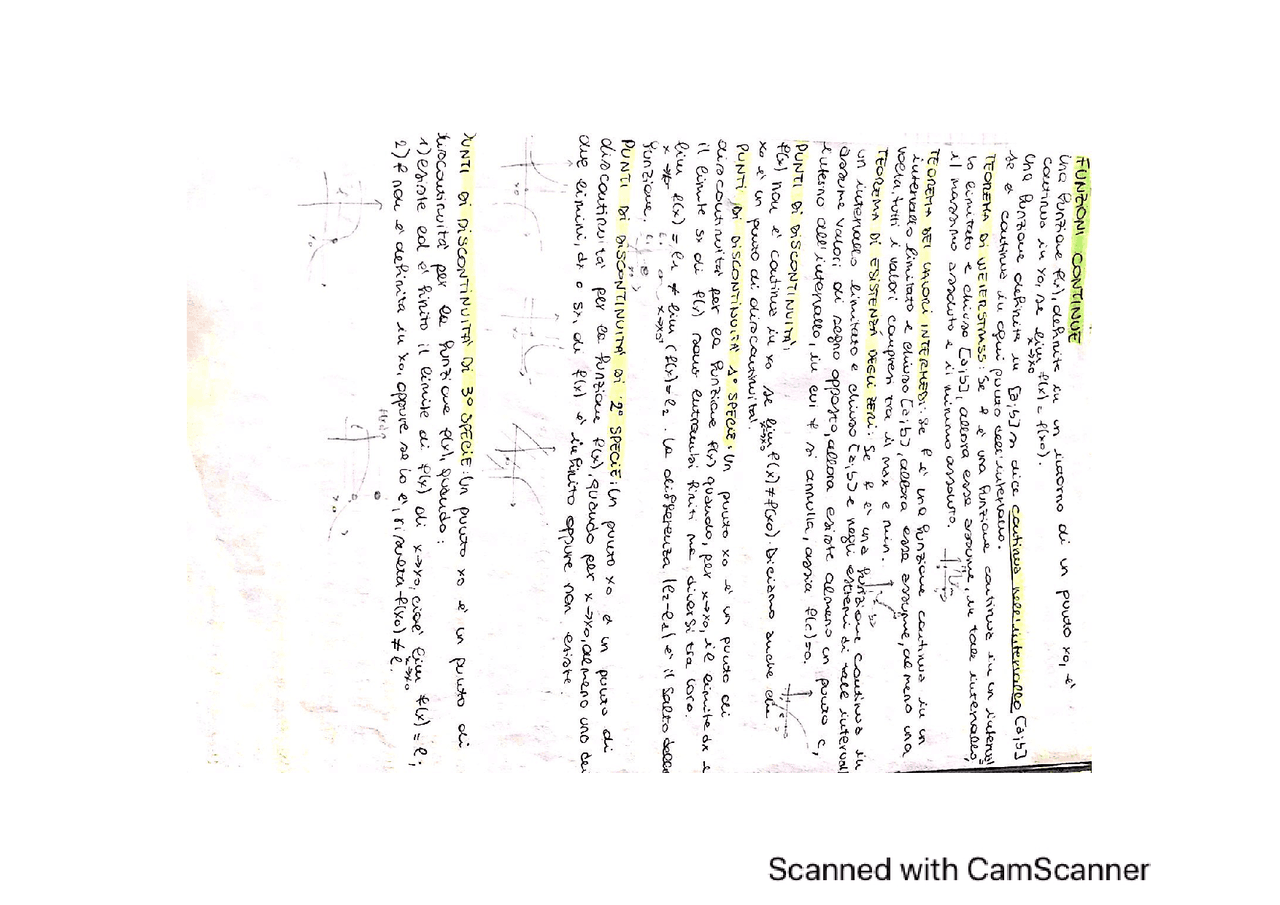 FUNZIONI CONTINUE
Una funzione f(x), definita in un intorno di un punto x0, è
continua in x0, se lim f(x) = f(x0).
x→x0
Una funzione definita in [a;b] si dice continua nell'intervallo [a;b]
se è continua in ogni punto dell'intervallo.
TEOREMA DI WEIERSTRASS: Se f è una funzione continua in un interval
lo limitato e chiuso [a;b], allora essa assume, in tale intervallo,
il massimo assoluto e il minimo assoluto.
TEOREMA DEI VALORI INTERMEDI: Se f è una funzione continua in un
intervallo limitato e chiuso [a;b], allora essa assume, almeno una
volta, tutti i valori compresi tra il max e min.
TEOREMA DI ESISTENZA DEGLI ZERI: Se f è una funzione continua in
un intervallo limitato e chiuso [a;b] e negli estremi di tale interval
assume valori di segno opposto, allora esiste almeno un punto c,
interno all'intervallo, in cui f si annulla, ossia f(c)=0.
PUNTI DI DISCONTINUITÀ:
f(x) non è continua in x0 se lim f(x) ≠ f(x0). Diciamo anche che
x→x0
x0 è un punto di discontinuità.
PUNTI DI DISCONTINUITÀ 1° SPECIE: Un punto x0 è un punto di
discontinuità per la funzione f(x) quando, per x→x0, il limite dx e
il limite sx di f(x) sono entrambi finiti ma diversi tra loro.
lim f(x) = l1 ≠ lim f(x) = l2. La differenza |l2-l1| è il salto della
x→x0 x→x0
funzione.
PUNTI DI DISCONTINUITÀ DI 2° SPECIE: Un punto x0 è un punto di
discontinuità per la funzione f(x), quando per x→x0, almeno uno dei
due limiti, dx o sx, di f(x) è infinito oppure non esiste.
PUNTI DI DISCONTINUITÀ DI 3° SPECIE: Un punto x0 è un punto di
discontinuità per la funzione f(x), quando:
1) esiste ed è finito il limite di f(x) di x→x0, cioè lim f(x) = l;
x→x0
2) f non è definita in x0, oppure se lo è, risulta f(x0) ≠ l.
Scanned with CamScanner